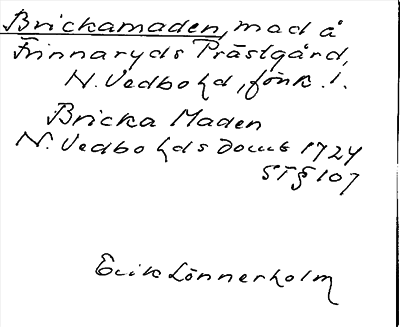 Brickamaden, mad å
Frinnaryds Prästgård,
N. Vedbo hd, Jönk. l.
Bricka Maden
N. Vedbo hds Domb 1724
ST § 107
Erik Lönnerholm